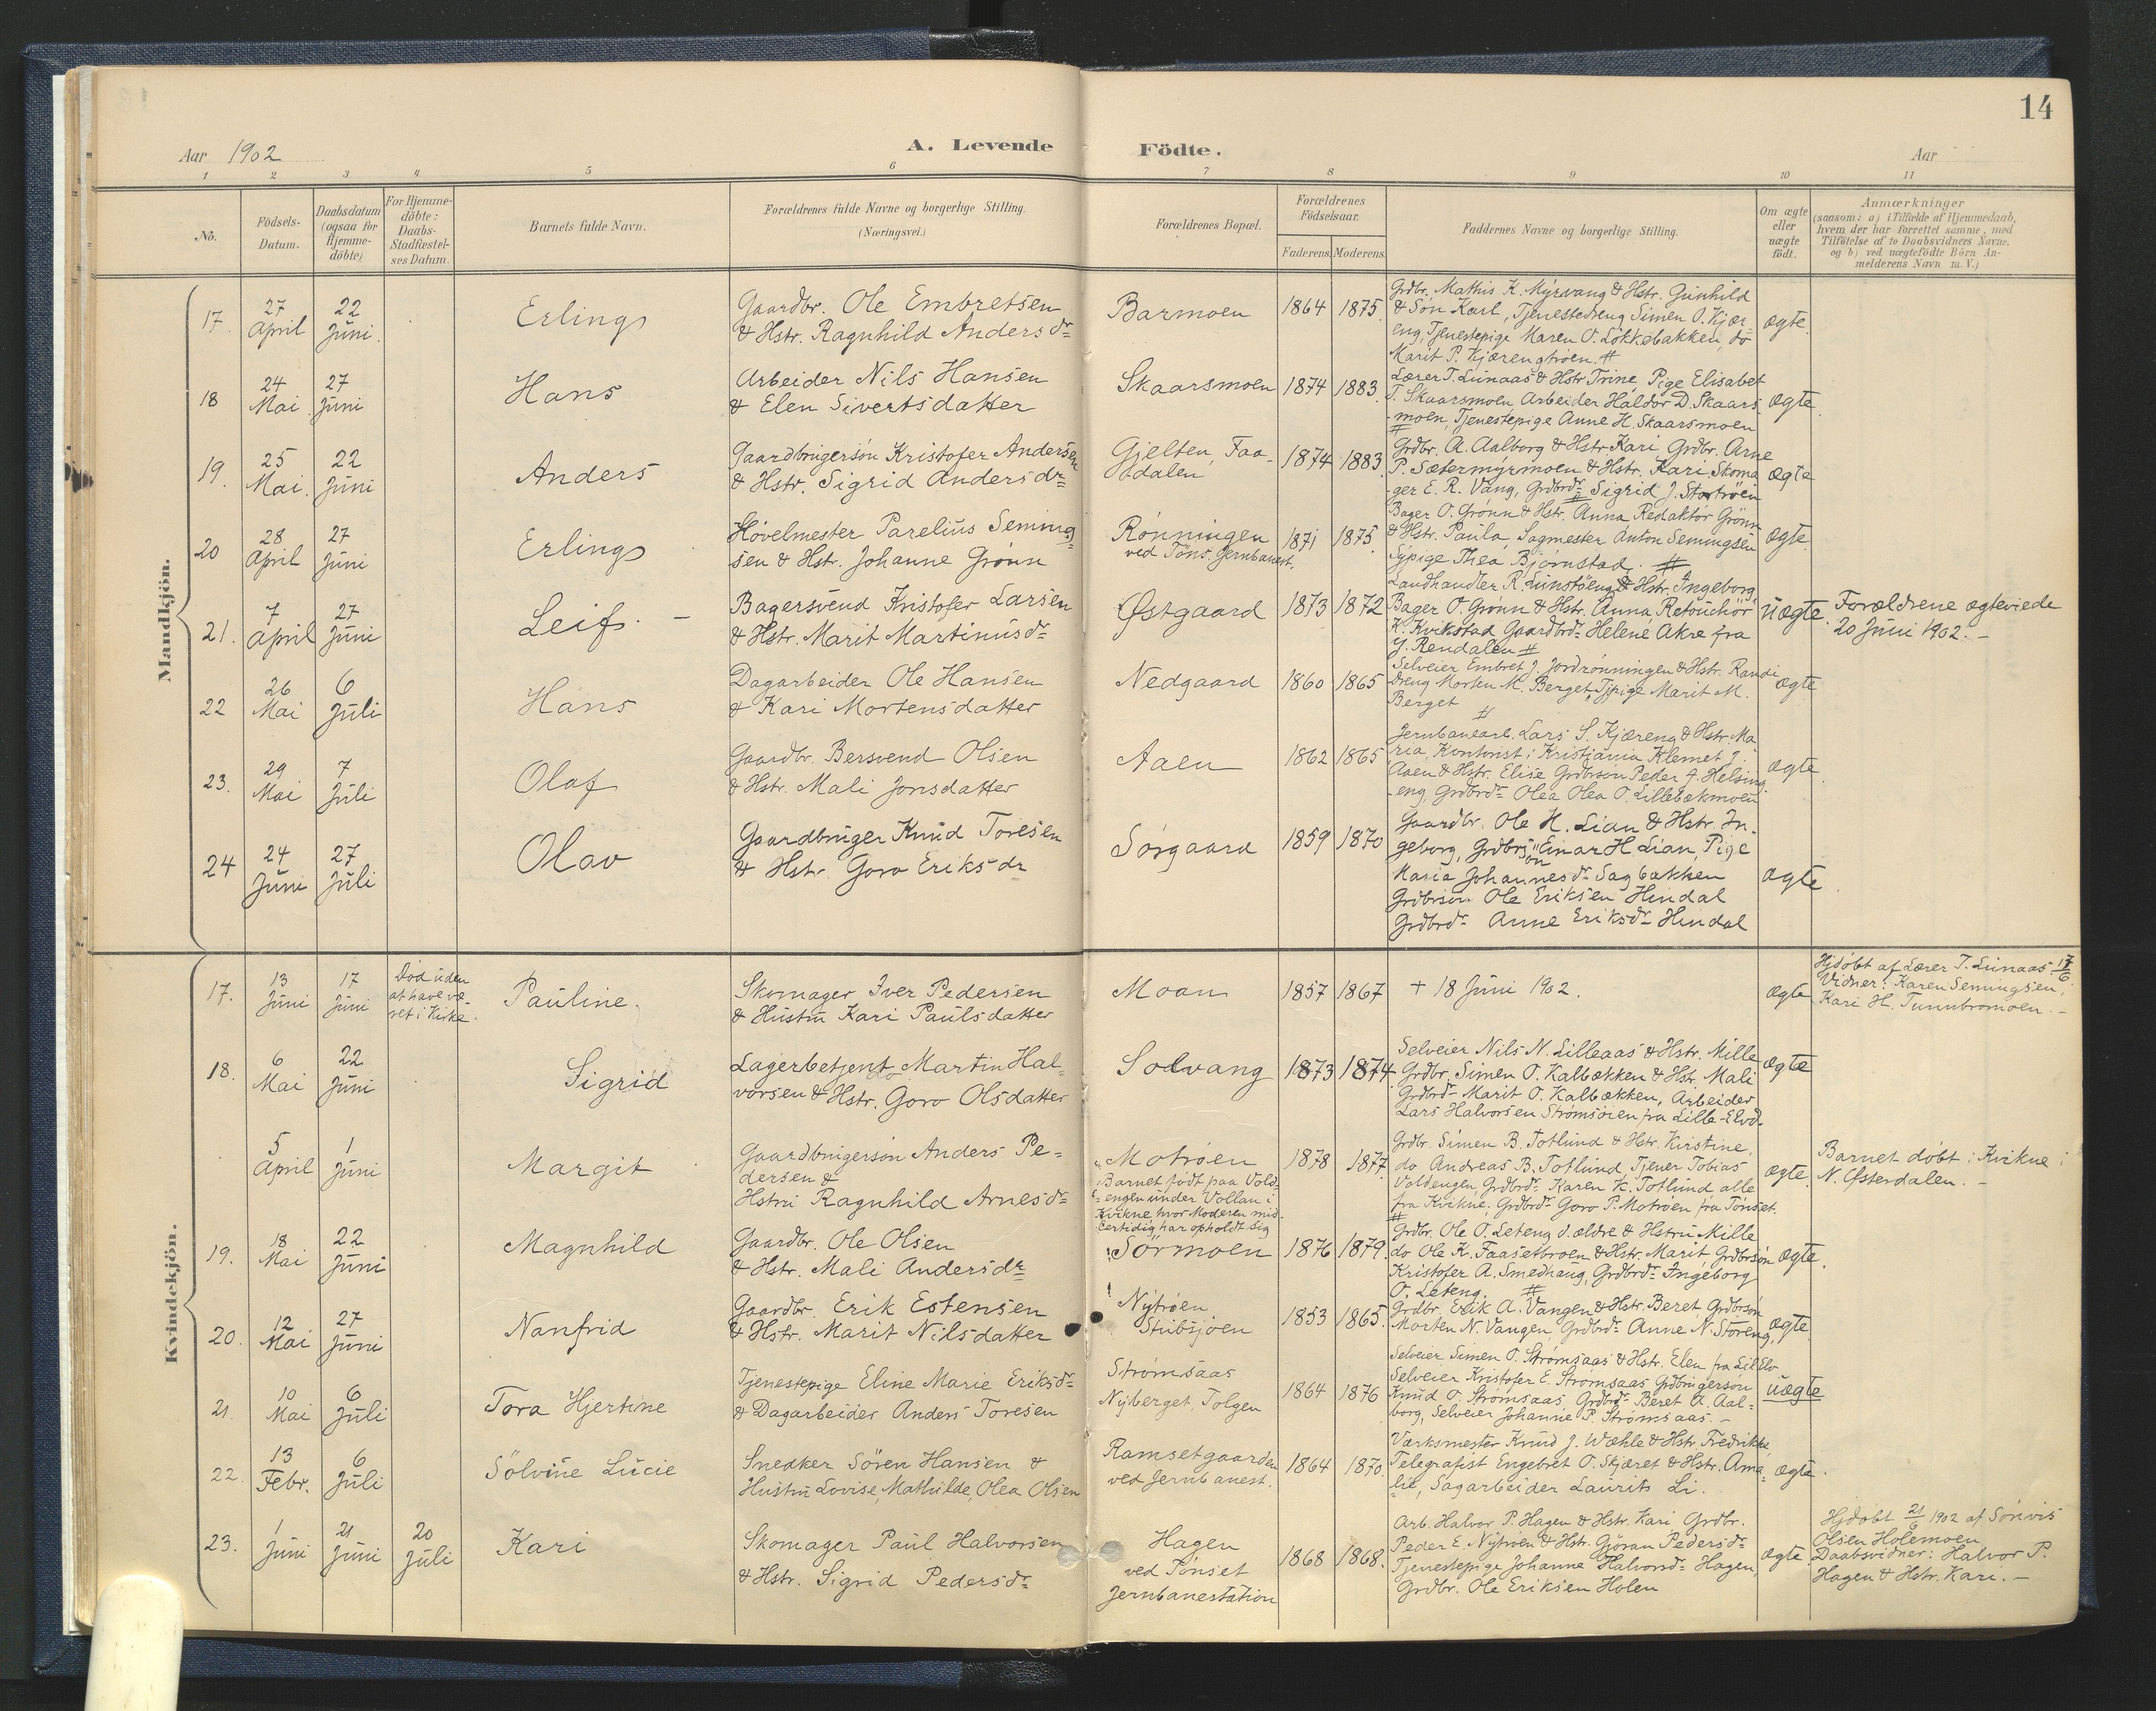 14
Aar 1902
A. Levende Födte.
Aar
1 2 3 4 5 6 7 8 9 10 11
No.
Födsels-
Datum.
Daabsdatum
(ogsaa for
Hjemme-
döbte)
For Hjemme-
döbte:
Daabs-
Stadfæstel-
ses Datum.
Barnets fulde Navn.
Forældrenes fulde Navne og borgerlige Stilling.
(Næringsvei.)
Forældrenes Bopæl.
Forældrenes
Födselsaar.
Faderens. Moderens.
Faddernes Navne og borgerlige Stilling.
Om ægte
eller
uægte
födt.
Anmærkninger
(saasom: a) i Tilfælde af Hjemmedaab,
hvem der har forrettet samme, med
Tilföielse af to Daabsvidners Navne,
og b) ved uægtefödte Börn An-
melderens Navn m.V.)
Mandkjön.
17.
27
April
22
Juni.
Erling
Gaardbr. Ole Embretsen
& Hstr. Ragnhild Andersdr
Barmoen
1864 1875.
Grdbr. Mathis K. Myrvang & Hstr. Gunhild
& Søn Karl, Tjenestedreng Simen O. Kjær-
eng, Tjenestepige Maren O. Løkkebakken, do
Marit P. Kjærengtrøen. #
ægte.
18
24
Mai
27
Juni
Hans
Arbeider Nils Hansen
& Elen Sivertsdatter
Skaarsmoen
1874 1883.
Lærer T. Lunaas & Hstr Trine, Pige Elisabet
T. Skaarsmoen Arbeider Haldor D. Skaars-
moen, Tjenestepige Anne H. Skaarsmoen
#
ægte.
19.
25
Mai.
22
Juni
Anders
Gaardbrugersøn Kristofer Andersen
& Hstr. Sigrid Andersdr
Gjelten, Faa-
dalen
1874 1883
Grdbr. A. Aalborg & Hstr Kari Grdbr. Arne
P. Sætermyrmoen & Hstr. Kari Skoma
ger E. R. Vang, Grdbrdr Sigrid J. Stortrøen
#
ægte
20
28
April
27
Juni
Erling
Høvelmester Parelius Seming-
sen & Hstr. Johanne Grønn
Rønningen
ved Tøns. Jernbanest.
1871 1875.
Bager O. Grønn & Hstr. Anna Redaktør Grønn
& Hstr. Paula Sagmester Anton Semingsen
Sypige Thea Bjørnstad. #
ægte.
21.
7
April
27
Juni
Leif. -
Bagersvend Kristofer Larsen
& Hstr. Marit Martinusdr
Østgaard
1873 1872
Landhandler R. Lunstøeng & Hstr. Ingeborg,
Bager O. Grønn & Hstr. Anna, Retouchør
K. Kvikstad Gaardbrdr Helene Akre fra
Y. Rendalen #
uægte.
Forældrene ægteviede
20 Juni 1902. -
22
26
Mai
6
Juli
Hans
Dagarbeider Ole Hansen
& Kari Mortensdatter
Nedgaard
1860 1865
Selveier Embret J. Jordrønningen & Hstr. Randi
dreng Morten M. Berget, Tjpige Marit M.
Berget #
ægte
23.
29
Mai
7
Juli
Olaf
Gaardbr. Bersvend Olsen
& Hstr. Mali Jonsdatter
Aaen
1862 1865
Jernbanearb. Lars S. Kjæreng & Hstr. Ma
ria, Kontorist i Kristiania Klemet J.
Aaen & Hstr. Elise Grdbrsøn Peder J. Helsing-
eng, Grdbrdr Olea Olea O. Lillebækmoen
ægte.
24
24
Juni
27
Juli
Olav
Gaardbruger Knud Toresen
& Hstr. Goro Eriksdr
Sørgaard
1859 1870
Gaardbr. Ole H. Lian & Hstr. In-
geborg, Grdbrsøn Einar H. Lian, Pige
Maria Johannesdr Sagbakken
Grdbrsøn Ole Eriksen Hindal
Grdbrdr Anne Eriksdr Hindal
ægte.
Kvindekjön.
17.
13
Juni
17
Juni
Død uden
at have væ-
ret i Kirke.
Pauline.
Skomager Iver Pedersen
& Hustru Kari Paulsdatter
Moan
1857 1867
+ 18 Juni 1902.
ægte
Hjdøbt af Lærer T. Lunaas 17/6.
Vidner: Karen Semingsen,
Kari H. Tunnbromoen. -
18.
6
Mai
22
Juni
Sigrid
Lagerbetjent Martin Hal-
vorsen & Hstr. Goro Olsdatter
Solvang
1873 1874.
Selveier Nils N. Lilleaas & Hstr. Mille
Grdbr. Simen O. Kalbækken & Hstr. Mali
Grdbrdr Marit O. Kalbækken, Arbeider
Lars Halvorsen Strømsøien fra Lille-Elvd.
ægte
5
April
1
Juni
Margit
Gaardbrugersøn Anders Pe-
dersen &
Hstru Ragnhild Arnesdr
Motrøen
Barnet født paa Vold-
engen under Vollan i
Kvikne hvor Moderen mid-
lertidig har opholdt sig
1878 1877
Grdbr. Simen B. Totlund & Hstr. Kirstine,
do Andreas B. Totlund Tjener Tobias
Voldengen, Grdbrdr Karen K. Totlund alle
fra Kvikne, Grdbrdr Goro P. Motrøen fra Tønset.
#
ægte.
Barnet døbt i Kvikne i
N. Østerdalen. -
19.
18
Mai
22
Juni
Magnhild
Gaardbr. Ole Olsen
& Hstr. Mali Andersdr
Sørmoen
1876 1879.
Grdbr. Ole O. Leteng d. ældre & Hstru Mille
do Ole K. Faasetbroen & Hstr. Marit, Grdbrsøn
Kristofer A. Smedhaug, Grdbrdr Ingeborg
O. Leteng. #
ægte.
20.
12
Mai
27
Juni
Nanfrid
Gaardbr. Erik Estensen
& Hstr. Marit Nilsdatter
Nytrøen
Stubsjøen
1853 1865.
Grdbr. Erik A. Vangen & Hstr. Beret, Grdbrsøn
Morten N. Vangen, Grdbrdr Anne N. Støreng,
ægte
21.
10
Mai
6
Juli
Tora Hjertine
Tjenestepige Eline Marie Eriksdr
& Dagarbeider Anders Toresen
Strømsaas
Nyberget, Tolgen
1864 1876
Selveier Simen O. Strømsaas & Hstr. Elen fra LilElv.
Selveier Kristofer E. Strømsaas Grdbrugersøn
Knud O. Strømsaas, Grdbrdr Beret A. Aal-
borg, Selveier Johanne P. Strømsaas. -
uægte
22.
13
Febr.
6
Juli
Sölvine Lucie
Snedker Sören Hansen &
Hustru Lovise, Mathilde, Olea Olsen
Ramsetgaarden
ved Jernbanest.
1864 1870.
Værksmester Knud J. Wæhle & Hstr. Fredrikke,
Telegrafist Engebret O. Skjæret & Hstr. Ama-
lie, Sagarbeider Laurits Li.
ægte.
23.
1
Juni
21
Juni
20
Juli
Kari
Skomager Paul Halvorsen
& Hstr. Sigrid Pedersdr
Hagen
ved Tønset
Jernbanestation
1868 1868.
Arb. Halvor P. Hagen & Hstr. Kari Grdbr.
Peder E. Nytrøen & Hstr. Gjøran Pedersdr
Tjenestepige Johanne Halvorsdr Hagen,
Grdbr. Ole Eriksen Holen
ægte
Hjdøbt 21/6 1902 af Sønvis
Olsen Holemoen
Daabsvidner: Halvor P.
Hagen & Hstr. Kari. -